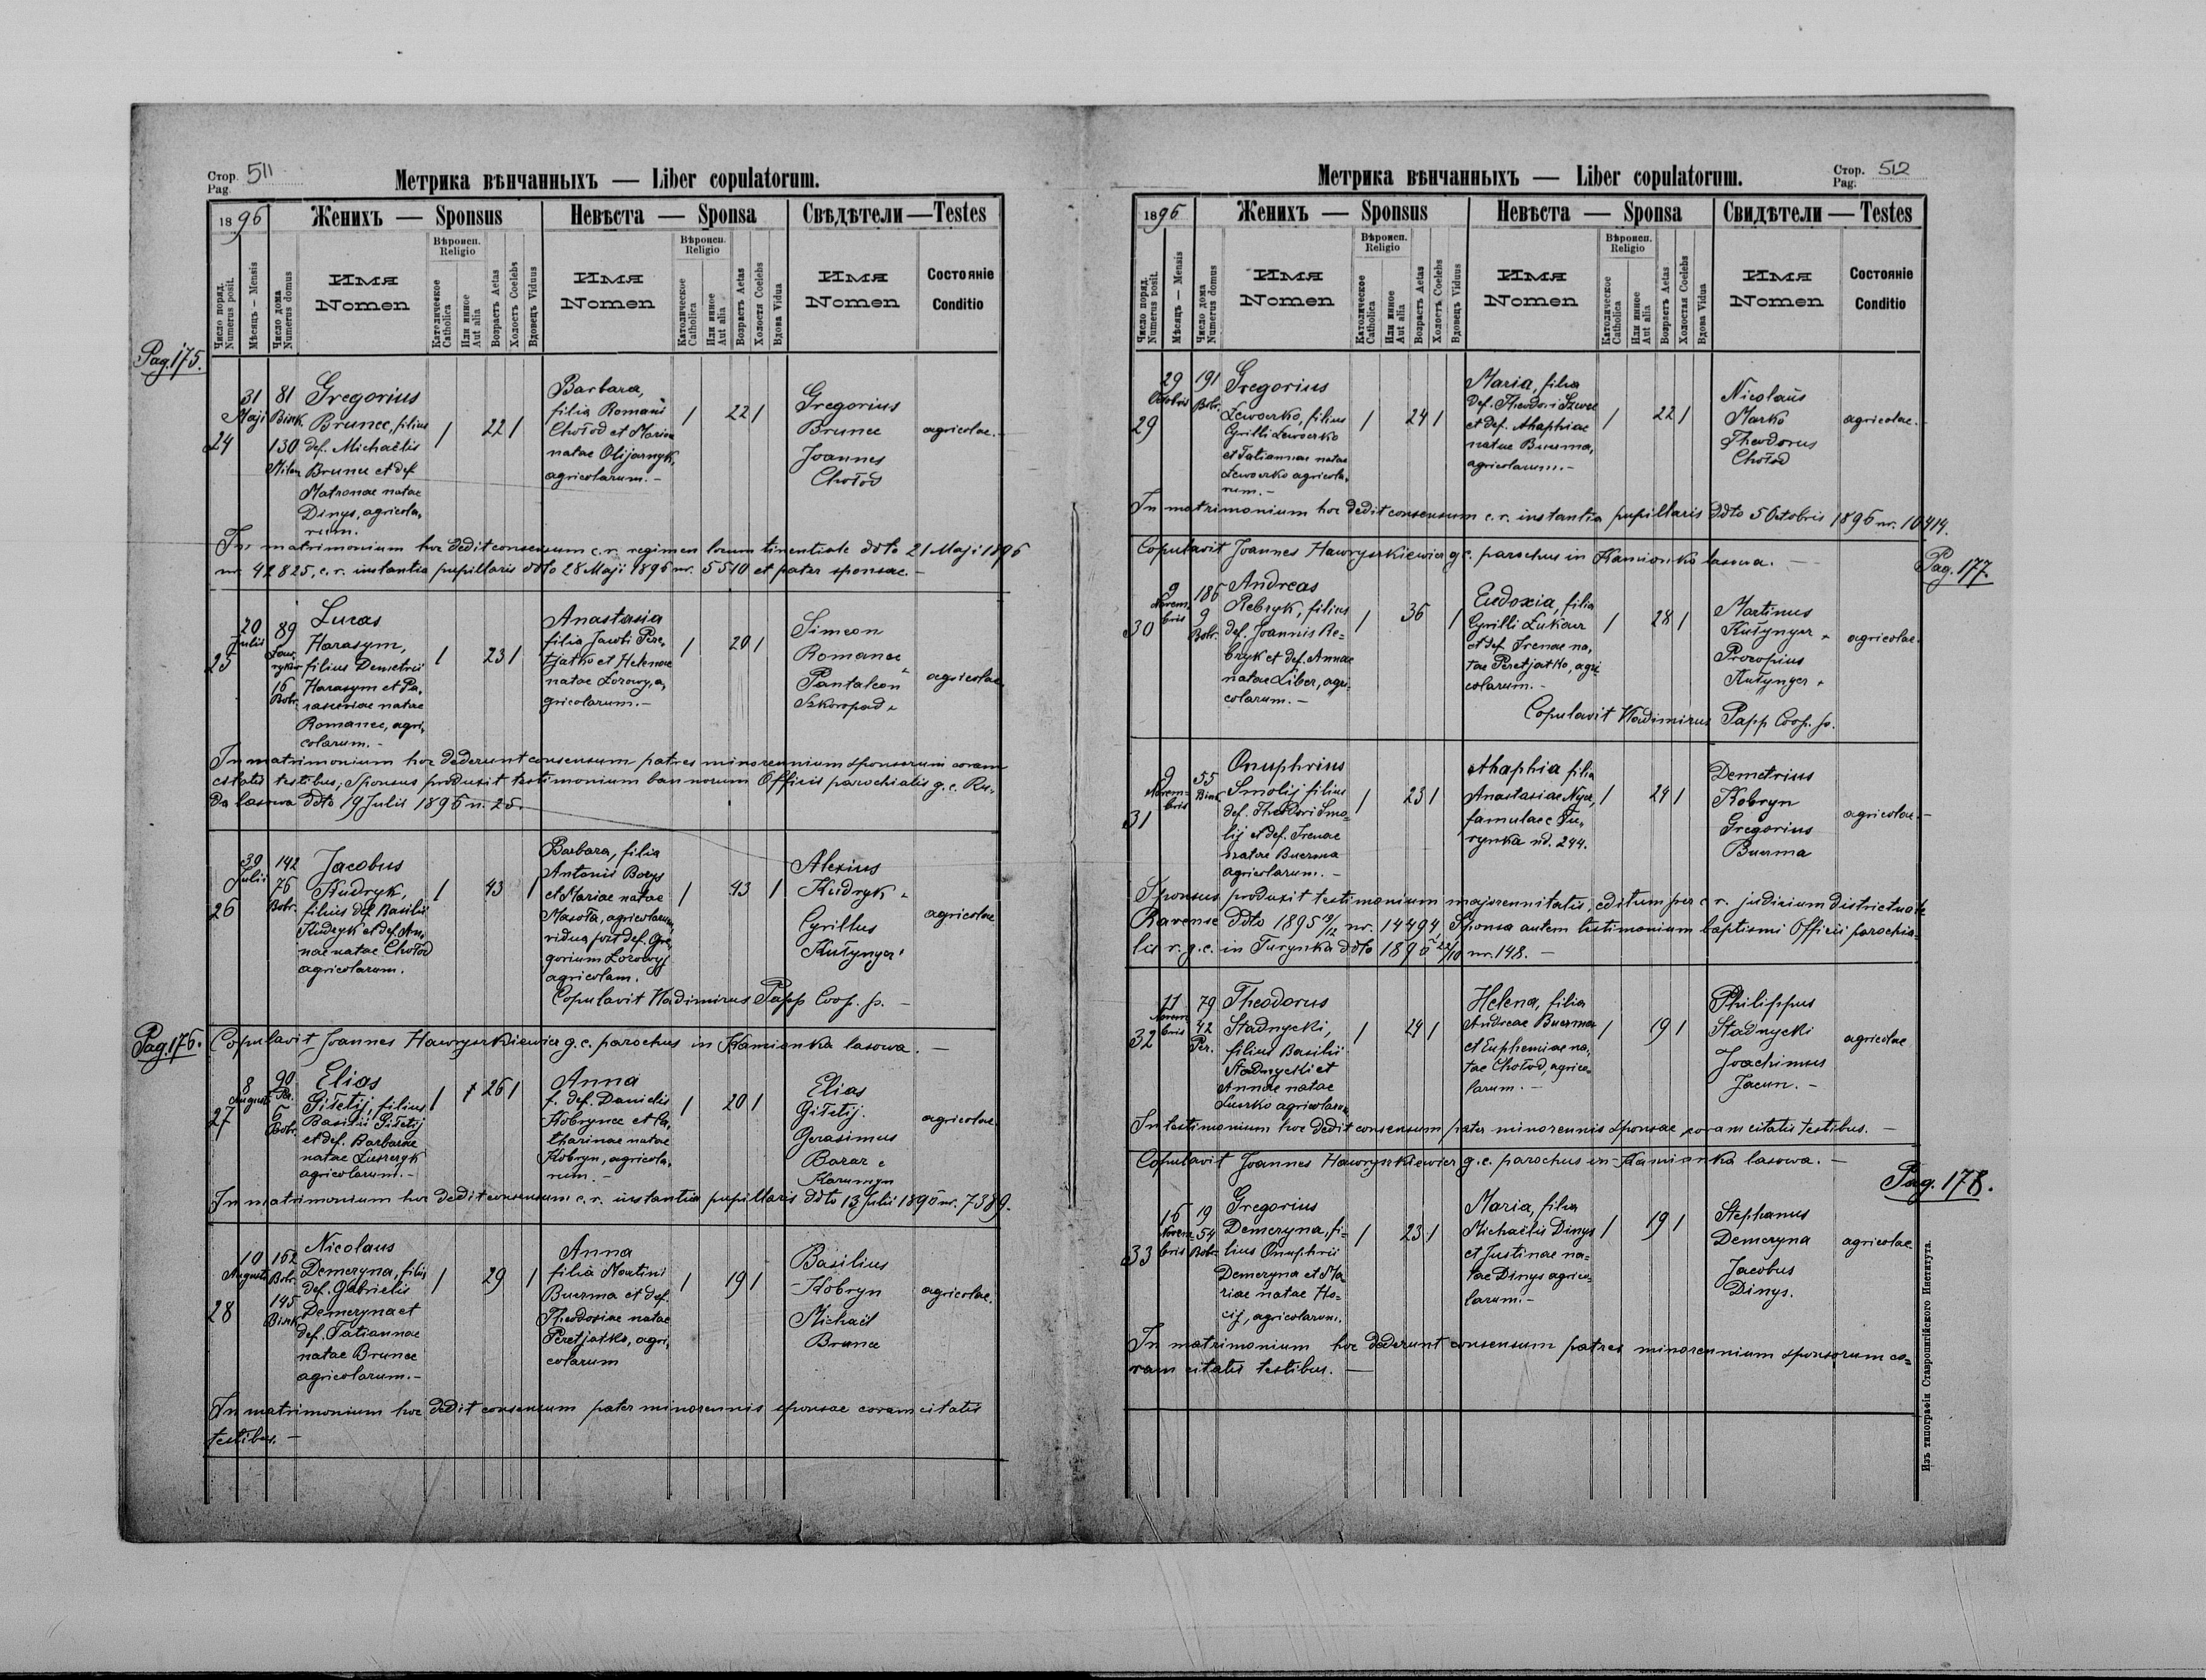 Стор. Pag. 511
Метрика вѣнчанныхъ — Liber copulatorum.
1896
Женихъ — Sponsus
Невѣста — Sponsa
Свѣдѣтели — Testes
Число поряд. Numerus posit.
Мѣсяцъ — Mensis
Число дома Numerus domus
Имя Nomen
Вѣроисп. Religio
Католическое Catholica
Или инное Aut alia
Возрастъ Aetas
Холостъ Coelebs
Вдовецъ Viduus
Имя Nomen
Вѣроисп. Religio
Католическое Catholica
Или инное Aut alia
Возрастъ Aetas
Холостая Coelebs
Вдова Vidua
Имя Nomen
Состояніе Conditio
Pag. 175.
24
31 Maji
81 Bink.
130
Gregorius
Brunec, filius
def. Michaëlis
Brunec et def.
Matronae natae
Dinys, agricola,
rum.
1
22 1
Barbara,
filia Romani
Chołod et Mariae
natae Olijarnyk,
agricolarum.-
1
22 1
Gregorius
Brunec
Joannes
Chołod
agricolae.
In matrimonium hoc dedit consensum c. r. regimen locum tinentiale ddto 21 Maji 1896
nr. 42825, c. r. instantia pupillaris ddto 28 Maji 1896 nr. 5510 et pater sponsae.-
25
20 Julii
89
16 Bobr.
Lucas
Harasym,
filius Demetrii
Harasym et Pa,
rasceviae natae
Romanec, agri,
colarum.-
1
23 1
Anastasia
filia Jacobi Pere,
tjatko et Helenae
natae Lozowy, a,
gricolarum.-
1
20 1
Simeon
Romanec
Pantaleon
Szkoropad
agricolae
In matrimonium hoc dederunt consensum patres minorennium sponsorum coram
citatis testibus; Sponsus produxit testimonium bannorum Officii parochialis g. c. Ru,
da lasowa ddto 19 Julii 1896 n. 25.
26
30 Julii
142
76
Bobr.
Jacobus
Kudryk,
filius def. Basilii
Kudryk et def. An,
nae natae Chołod
agricolarum.
1
43
1
Barbara, filia
Antonii Borys
et Mariae natae
Masoła, agricolarum,
vidua post def. Gre,
gorium Lozowy,
agricolam.
1
43
1
Alexius
Kudryk
Cyrillus
Kułynycz
agricolae
Copulavit Wladimirus Papp Coop. p. -
Pag. 176.
Copulavit Joannes Hawryszkiewicz g. c. parochus in Kamionka lasowa. —
27
8 Augusti
90 Per.
6 Bobr.
Elias
Giłetij, filius
Basilii Giłetij
et def. Barbarae
natae Luszczyk
agricolarum.-
1
26 1
Anna
f. def. Danielis
Kobrynec et Ca,
tharinae natae
Kobryn, agricola,
rum.-
1
20 1
Elias
Giłetij.
Gerasimus
Bazar
agricolae.
In matrimonium hoc dedit consensum c. r. instantia pupillaris ddto 13 Julii 1896 nr. 7389.
28
10 Augusti
162 Bobr.
145 Bink.
Nicolaus
Demeryna, filius
def. Gabrielis
Demeryna et
def. Tatiannae
natae Brunec
agricolarum.-
1
29
1
Anna
filia Martini
Buczma et def.
Theodosiae natae
Peretjatko, agri,
colarum
1
19 1
Basilius
Kobryn
Michaël
Brunec
agricolae.
In matrimonium hoc dedit consensum pater minorennis sponsae coram citatis
testibus.-
Стор. Pag. 512
Метрика вѣнчанныхъ — Liber copulatorum.
1896
Женихъ — Sponsus
Невѣста — Sponsa
Свидѣтели — Testes
Число поряд. Numerus posit.
Мѣсяцъ — Mensis
Число дома Numerus domus
Имя Nomen
Вѣроисп. Religio
Католическое Catholica
Или инное Aut alia
Возрастъ Aetas
Холостъ Coelebs
Вдовецъ Viduus
Имя Nomen
Вѣроисп. Religio
Католическое Catholica
Или инное Aut alia
Возрастъ Aetas
Холостая Coelebs
Вдова Vidua
Имя Nomen
Состояніе Conditio
29
29 Octobris
191 Bobr.
Gregorius
Lewoczko, filius
Cyrilli Lewoczko
et Tatiannae natae
Lewoczko agricola,
rum.-
1
24 1
Maria, filia
def. Theodori Szwec
et def. Ahaphiae
natae Buczma,
agricolarum.-
1
22 1
Nicolaus
Marko
Theodorus
Chołod
agricolae.
In matrimonium hoc dedit consensum c. r. instantia pupillaris ddto 5 Octobris 1896 nr. 10414.
Copulavit Joannes Hawryszkiewicz g. c. parochus in Kamionka lasowa. —
Pag. 177.
30
9 Novembris
186
9 Bobr.
Andreas
Rebryk, filius
def. Joannis Re=
bryk et def. Annae
natae Liber, agri=
colarum.-
1
36
1
Eudoxia, filia
Cyrilli Lukacz
et def. Irenae na,
tae Peretjatko, agri
colarum.-
1
28 1
Martinus
Kułynycz
Procopius
Kułynycz
agricolae
Copulavit Wladimirus Papp Coop. p.
31
9 Novembris
55 Bink.
Onuphrius
Smolij filius
def. Theodori Smo=
lij et def. Irenae
natae Buczma
agricolarum.-
1
23 1
Ahaphia filia
Anastasiae Nycz,
famulae e Tu,
rynka nd. 244.
1
24 1
Demetrius
Kobryn
Gregorius
Buczma
agricolae.-
Sponsus produxit testimonium majorennitatis, editum per c. r. judicium districtuale
Ravense ddto 1895 nr. 14494, Sponsa autem testimonium baptismi Officii parochia=
lis r. g. c. in Turynka ddto 1896 22/10 nr. 148.-
32
11 Novembris
79
42 Per.
Theodorus
Stadnycki,
filius Basilii
Stadnycki et
Annae natae
agricolarum
1
24 1
Helena, filia
Andreae Buczma
et Euphemiae na,
tae Chołod, agrico,
larum.-
1
19 1
Philippus
Stadnycki
Joachimus
Jacun.-
agricolae
In testimonium hoc dedit consensum pater minorennis sponsae coram citatis testibus. —
Copulavit Joannes Hawryszkiewicz g. c. parochus in Kamionka lasowa. —
Pag. 178.
33
16 Novembris
19
54 Bobr.
Gregorius
Demeryna, fi=
lius Onuphrii
Demeryna et Ma
riae natae Ho=
cij, agricolarum.
1
23 1
Maria, filia
Michaëlis Dinys
et Justinae na=
tae Dinys agrico,
larum.-
1
19 1
Stephanus
Demeryna
Jacobus
Dinys.
agricolae.
In matrimonium hoc dederunt consensum patres minorennium sponsorum co=
ram citatis testibus. —
Изъ типографіи Ставропигійского Института.